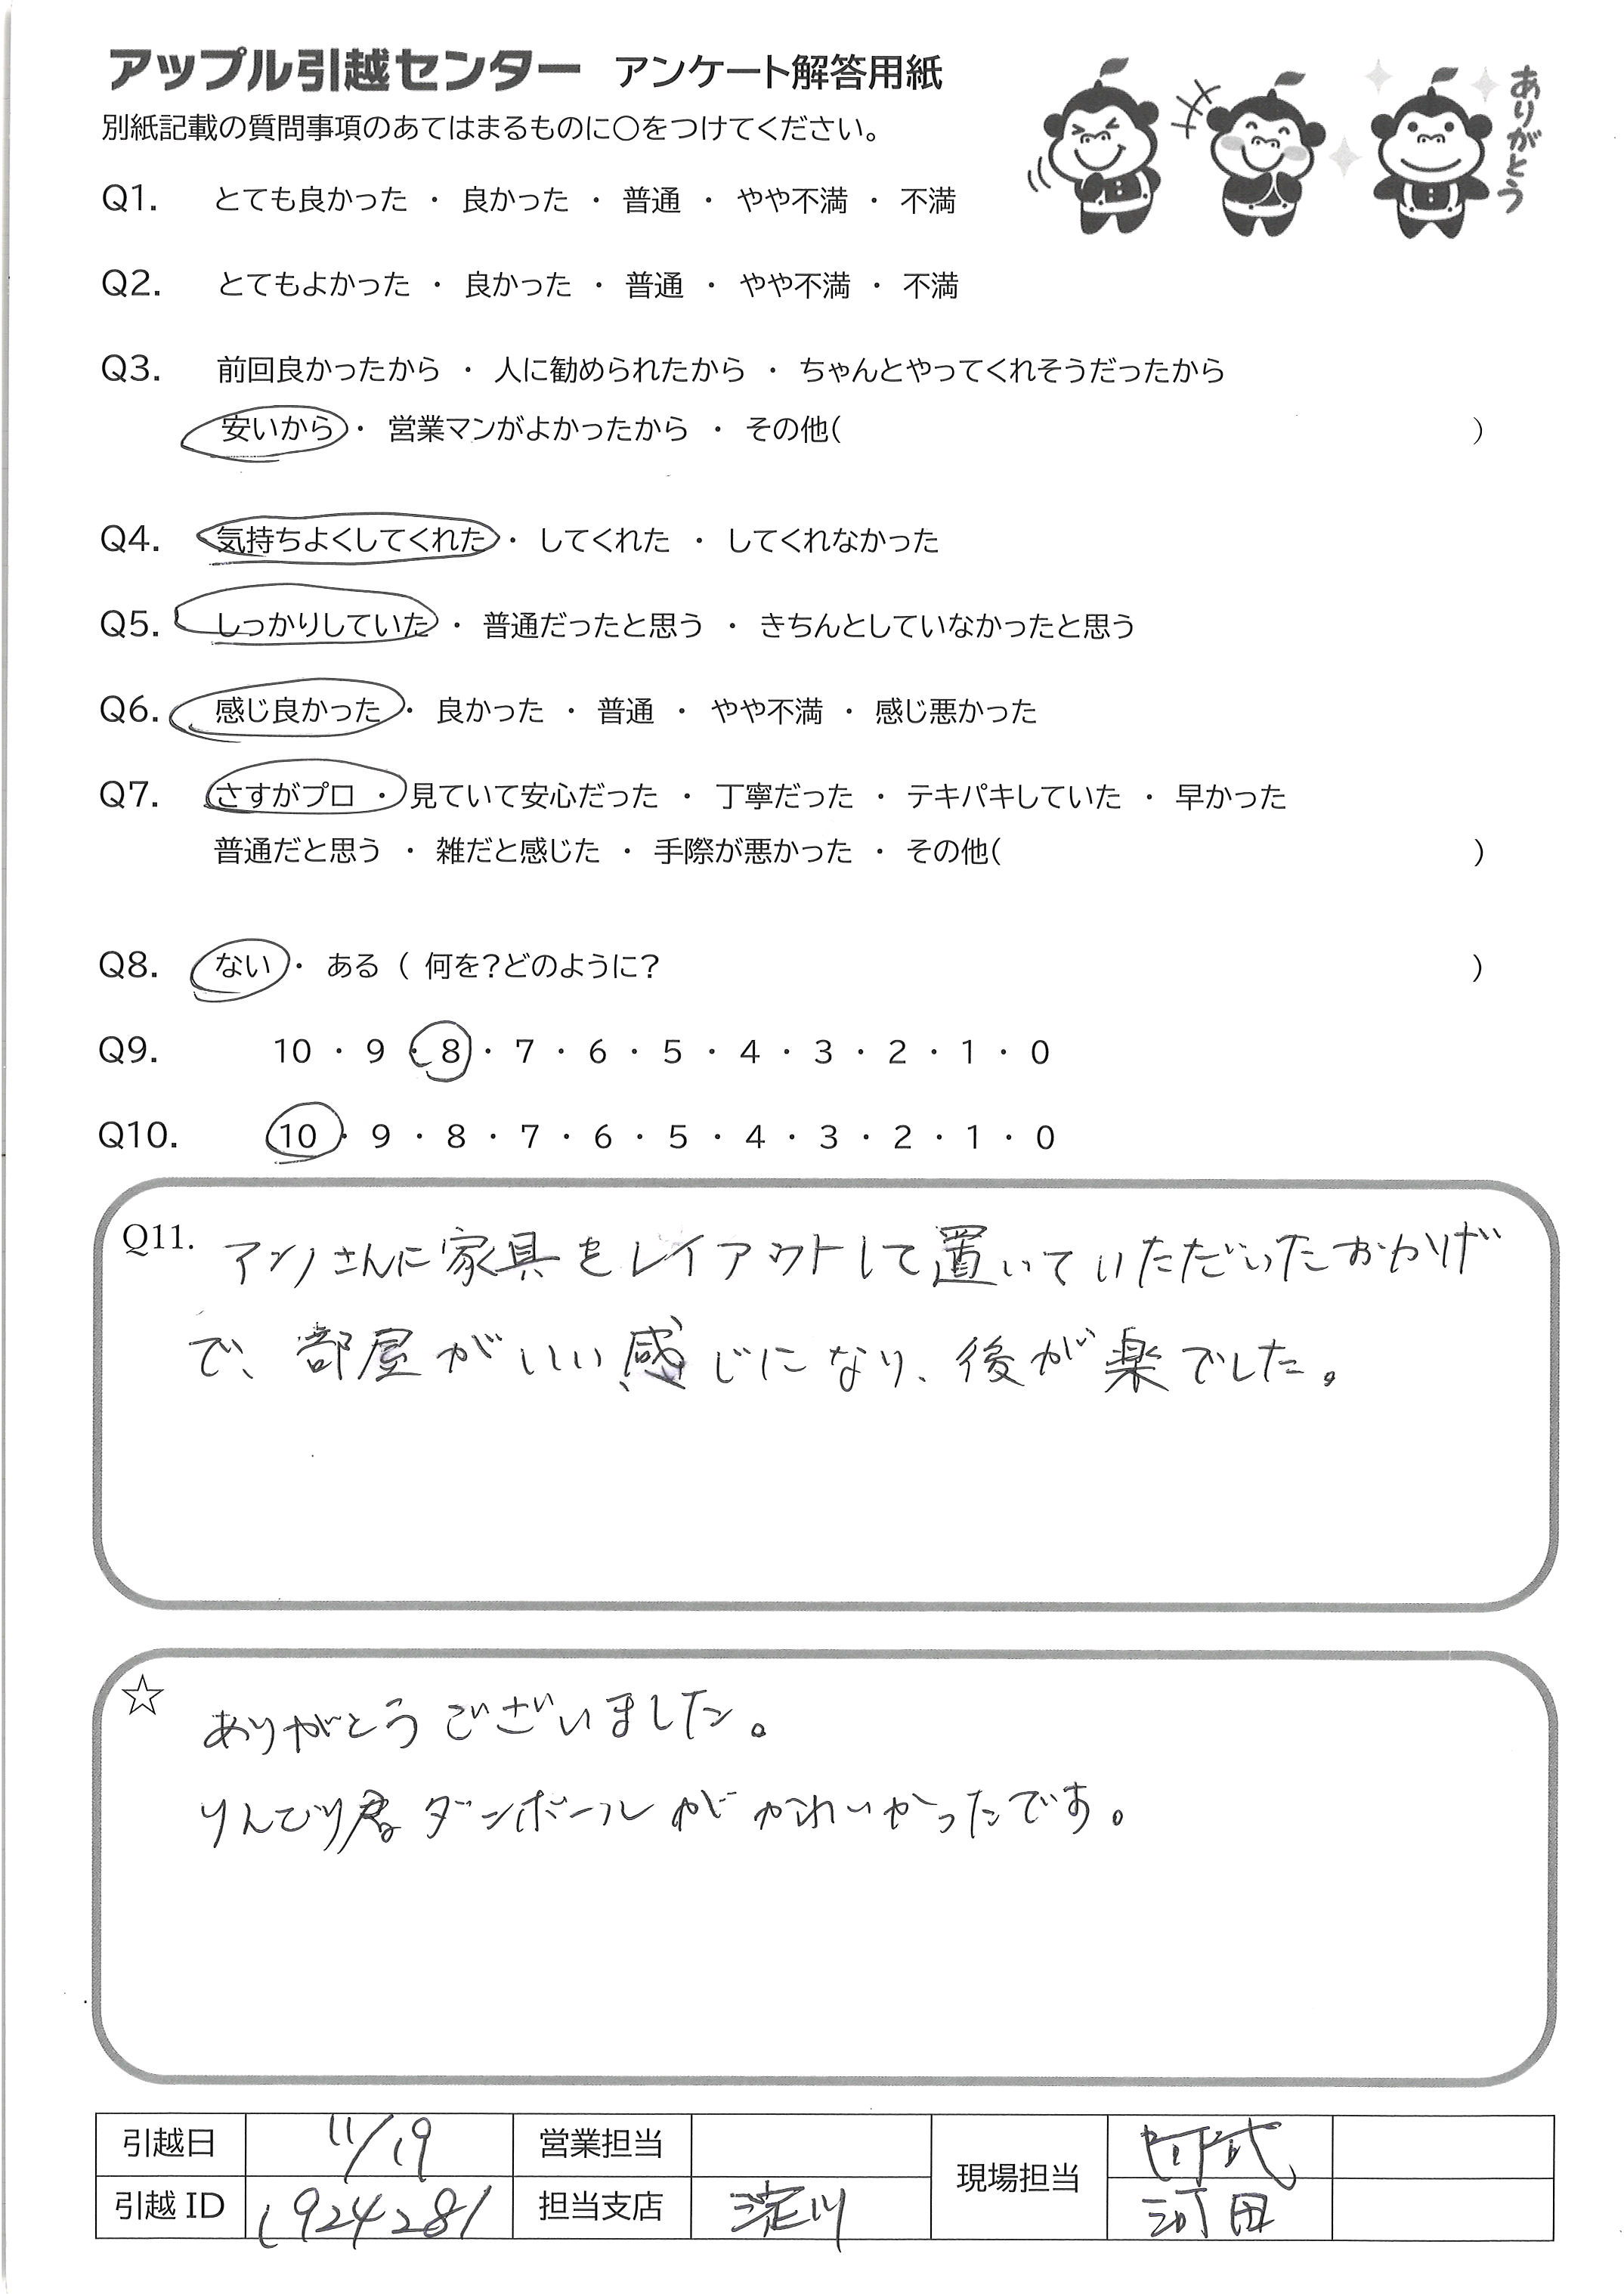 アップル引越センター アンケート解答用紙
別紙記載の質問事項のあてはまるものに○をつけてください。
ありがとう
Q1. とても良かった ・ 良かった ・ 普通 ・ やや不満 ・ 不満
Q2. とてもよかった ・ 良かった ・ 普通 ・ やや不満 ・ 不満
Q3. 前回良かったから ・ 人に勧められたから ・ ちゃんとやってくれそうだったから
安いから ・ 営業マンがよかったから ・ その他( )
Q4. 気持ちよくしてくれた ・ してくれた ・ してくれなかった
Q5. しっかりしていた ・ 普通だったと思う ・ きちんとしていなかったと思う
Q6. 感じ良かった ・ 良かった ・ 普通 ・ やや不満 ・ 感じ悪かった
Q7. さすがプロ ・ 見ていて安心だった ・ 丁寧だった ・ テキパキしていた ・ 早かった
普通だと思う ・ 雑だと感じた ・ 手際が悪かった ・ その他( )
Q8. ない ・ ある ( 何を?どのように? )
Q9. 10 ・ 9 ・ 8 ・ 7 ・ 6 ・ 5 ・ 4 ・ 3 ・ 2 ・ 1 ・ 0
Q10. 10 ・ 9 ・ 8 ・ 7 ・ 6 ・ 5 ・ 4 ・ 3 ・ 2 ・ 1 ・ 0
Q11. さんに家具をレイアウトして置いていただいたおかげ
で、部屋がいい感じになり、後が楽でした。
☆ ありがとうございました。
ダンボールがかわいかったです。
引越日 11/19 営業担当 現場担当
引越 ID 1924281 担当支店 淀川 河田